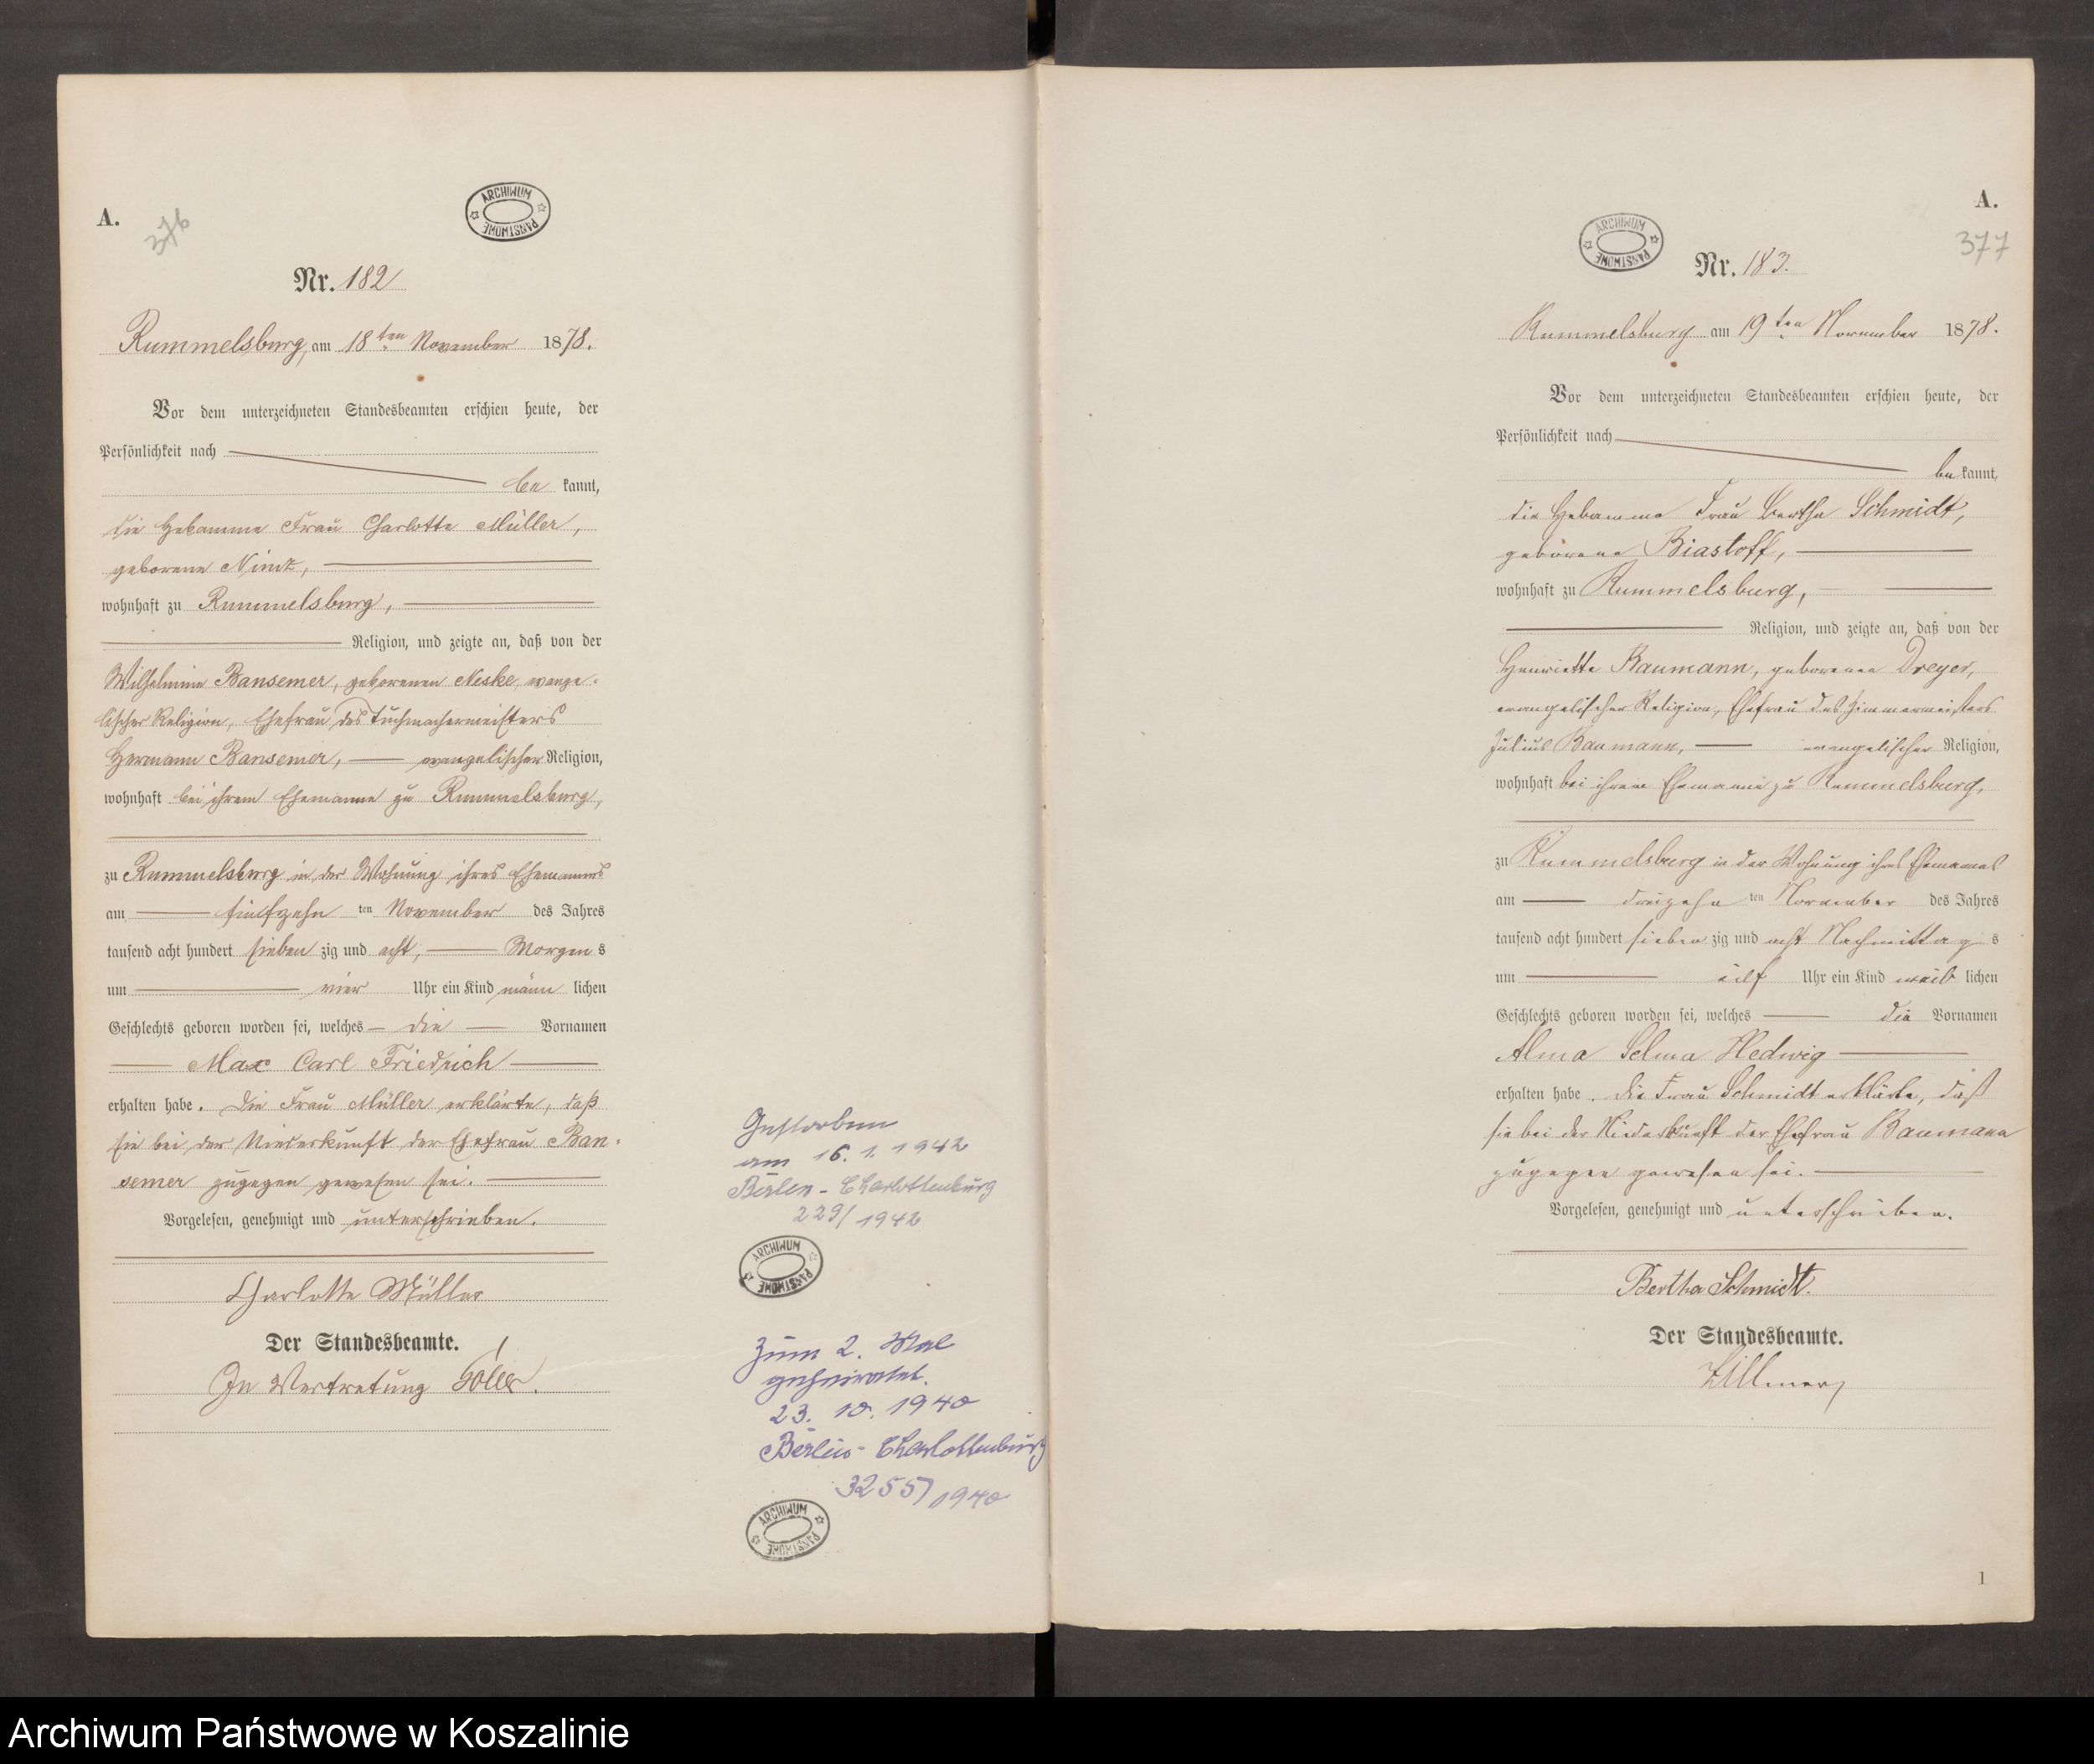 A.
376
ARCHIWUM PAŃSTWOWE
Nr. 182
Rummelsburg, am 18ten November 1878.
Vor dem unterzeichneten Standesbeamten erschien heute, der
Persönlichkeit nach
be kannt,
die Hebamme Frau Charlotte Müller,
geborene Nimtz,
wohnhaft zu Rummelsburg,
Religion, und zeigte an, daß von der
Wilhelmine Bansemer, geborenen Neske, evange-
lischer Religion, Ehefrau des Tuchmachermeisters
Hermann Bansemer, evangelischer Religion,
wohnhaft bei ihrem Ehemanne zu Rummelsburg,
zu Rummelsburg in der Wohnung ihres Ehemannes
am fünfzehn ten November des Jahres
tausend acht hundert sieben zig und acht, Morgen s
um vier Uhr ein Kind männ lichen
Geschlechts geboren worden sei, welches die Vornamen
Max Carl Friedrich
erhalten habe. Die Frau Müller erklärte, daß
sie bei der Niederkunft der Ehefrau Ban-
semer zugegen gewesen sei.
Vorgelesen, genehmigt und unterschrieben.
Charlotte Müller
Der Standesbeamte.
In Vertretung
Gestorben
am 16.1.1942
Berlin-Charlottenburg
229/1942
ARCHIWUM PAŃSTWOWE
Zum 2. Mal
geheiratet.
23. 10. 1940
Berlin-Charlottenburg
3255/1940
ARCHIWUM PAŃSTWOWE
A.
377
ARCHIWUM PAŃSTWOWE
Nr. 183.
Rummelsburg am 19ten November 1878.
Vor dem unterzeichneten Standesbeamten erschien heute, der
Persönlichkeit nach
be kannt,
die Hebamme Frau Bertha Schmidt,
geborene Biastoff,
wohnhaft zu Rummelsburg,
Religion, und zeigte an, daß von der
Henriette Baumann, geborenen Dreyer,
evangelischer Religion, Ehefrau des Zimmermeisters
Julius Baumann, evangelischer Religion,
wohnhaft bei ihrem Ehemanne zu Rummelsburg,
zu Rummelsburg in der Wohnung ihres Ehemannes
am dreizehn ten November des Jahres
tausend acht hundert sieben zig und acht Nachmittag s
um eilf Uhr ein Kind weib lichen
Geschlechts geboren worden sei, welches die Vornamen
Alma Selma Hedwig
erhalten habe. Die Frau Schmidt erklärte, daß
sie bei der Niederkunft der Ehefrau Baumann
zugegen gewesen sei.
Vorgelesen, genehmigt und unterschrieben.
Bertha Schmidt.
Der Standesbeamte.
Zillmer
1
Archiwum Państwowe w Koszalinie